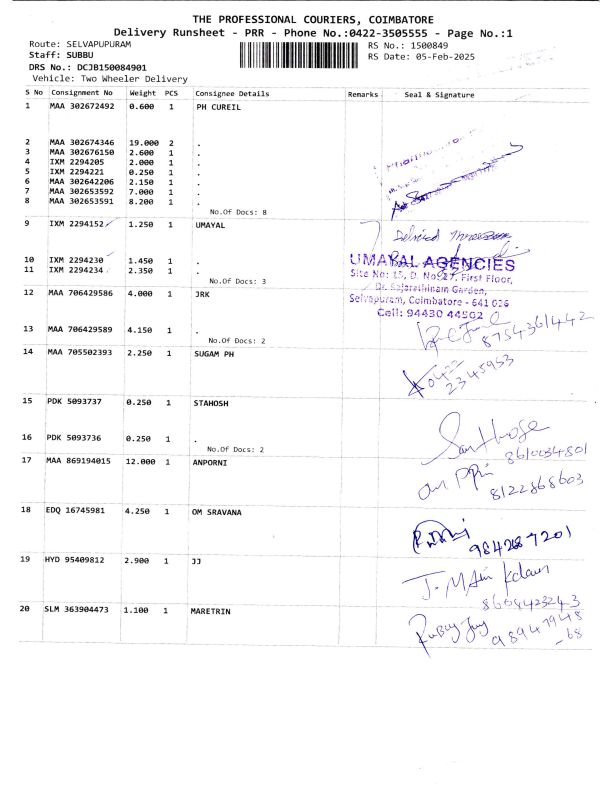 THE PROFESSIONAL COURIERS, COIMBATORE
Delivery Runsheet - PRR - Phone No.:0422-3505555 - Page No.:1
Route: SELVAPUPURAM RS No.: 1500849
Staff: SUBBU RS Date: 05-Feb-2025
DRS No.: DCJB150084901
Vehicle: Two Wheeler Delivery
S No Consignment No Weight PCS Consignee Details Remarks Seal & Signature
1 MAA 302672492 0.600 1 PH CUREIL
2 MAA 302674346 19.000 2 .
3 MAA 302676150 2.600 1 .
4 IXM 2294205 2.000 1 .
5 IXM 2294221 0.250 1 .
6 MAA 302642206 2.150 1 .
7 MAA 302653592 7.000 1 .
8 MAA 302653591 8.200 1 .
No.Of Docs: 8
9 IXM 2294152 1.250 1 UMAYAL
10 IXM 2294230 1.450 1 .
11 IXM 2294234 2.350 1 .
No.Of Docs: 3
UMAYAL AGENCIES
Site No: 15, D. No:27, First Floor,
Dr. Rajarathinam Garden,
Selvapuram, Coimbatore - 641 026
Cell: 94430 44502
12 MAA 706429586 4.000 1 JRK
13 MAA 706429589 4.150 1 .
No.Of Docs: 2
8754361442
14 MAA 705502393 2.250 1 SUGAM PH
0422
2345953
15 PDK 5093737 0.250 1 STAHOSH
16 PDK 5093736 0.250 1 .
No.Of Docs: 2
8610034801
17 MAA 869194015 12.000 1 ANPORNI
8122868603
18 EDQ 16745981 4.250 1 OM SRAVANA
9842687201
19 HYD 95409812 2.900 1 JJ
8604423243
20 SLM 363904473 1.100 1 MARETRIN
98947948
-68